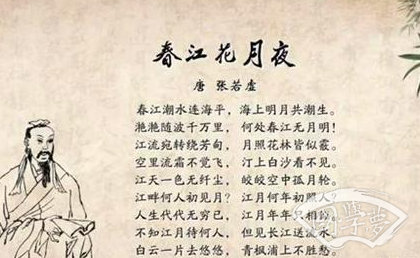 春江花月夜
唐 张若虚
春江潮水连海平，海上明月共潮生。
滟滟随波千万里，何处春江无月明！
江流宛转绕芳甸，月照花林皆似霰。
空里流霜不觉飞，汀上白沙看不见。
江天一色无纤尘，皎皎空中孤月轮。
江畔何人初见月？江月何年初照人？
人生代代无穷已，江月年年只相似。
不知江月待何人，但见长江送流水。
白云一片去悠悠，青枫浦上不胜愁。